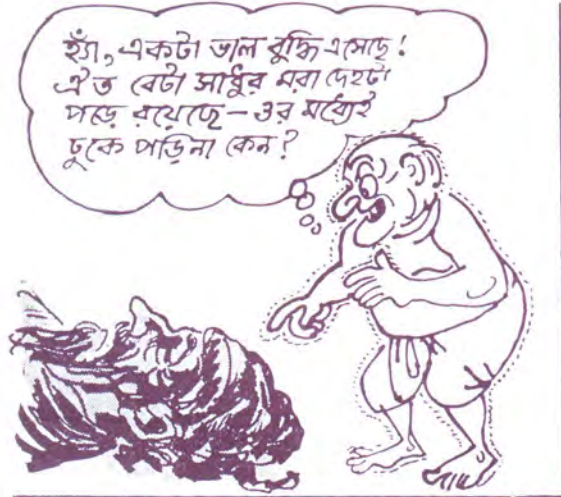 হ্যাঁ, একটা ভাল বুদ্ধি এসেছে!
ঐ ত বেটা সাধুর মরা দেহটা
পড়ে রয়েছে – ওর মধ্যেই
ঢুকে পড়িনা কেন?